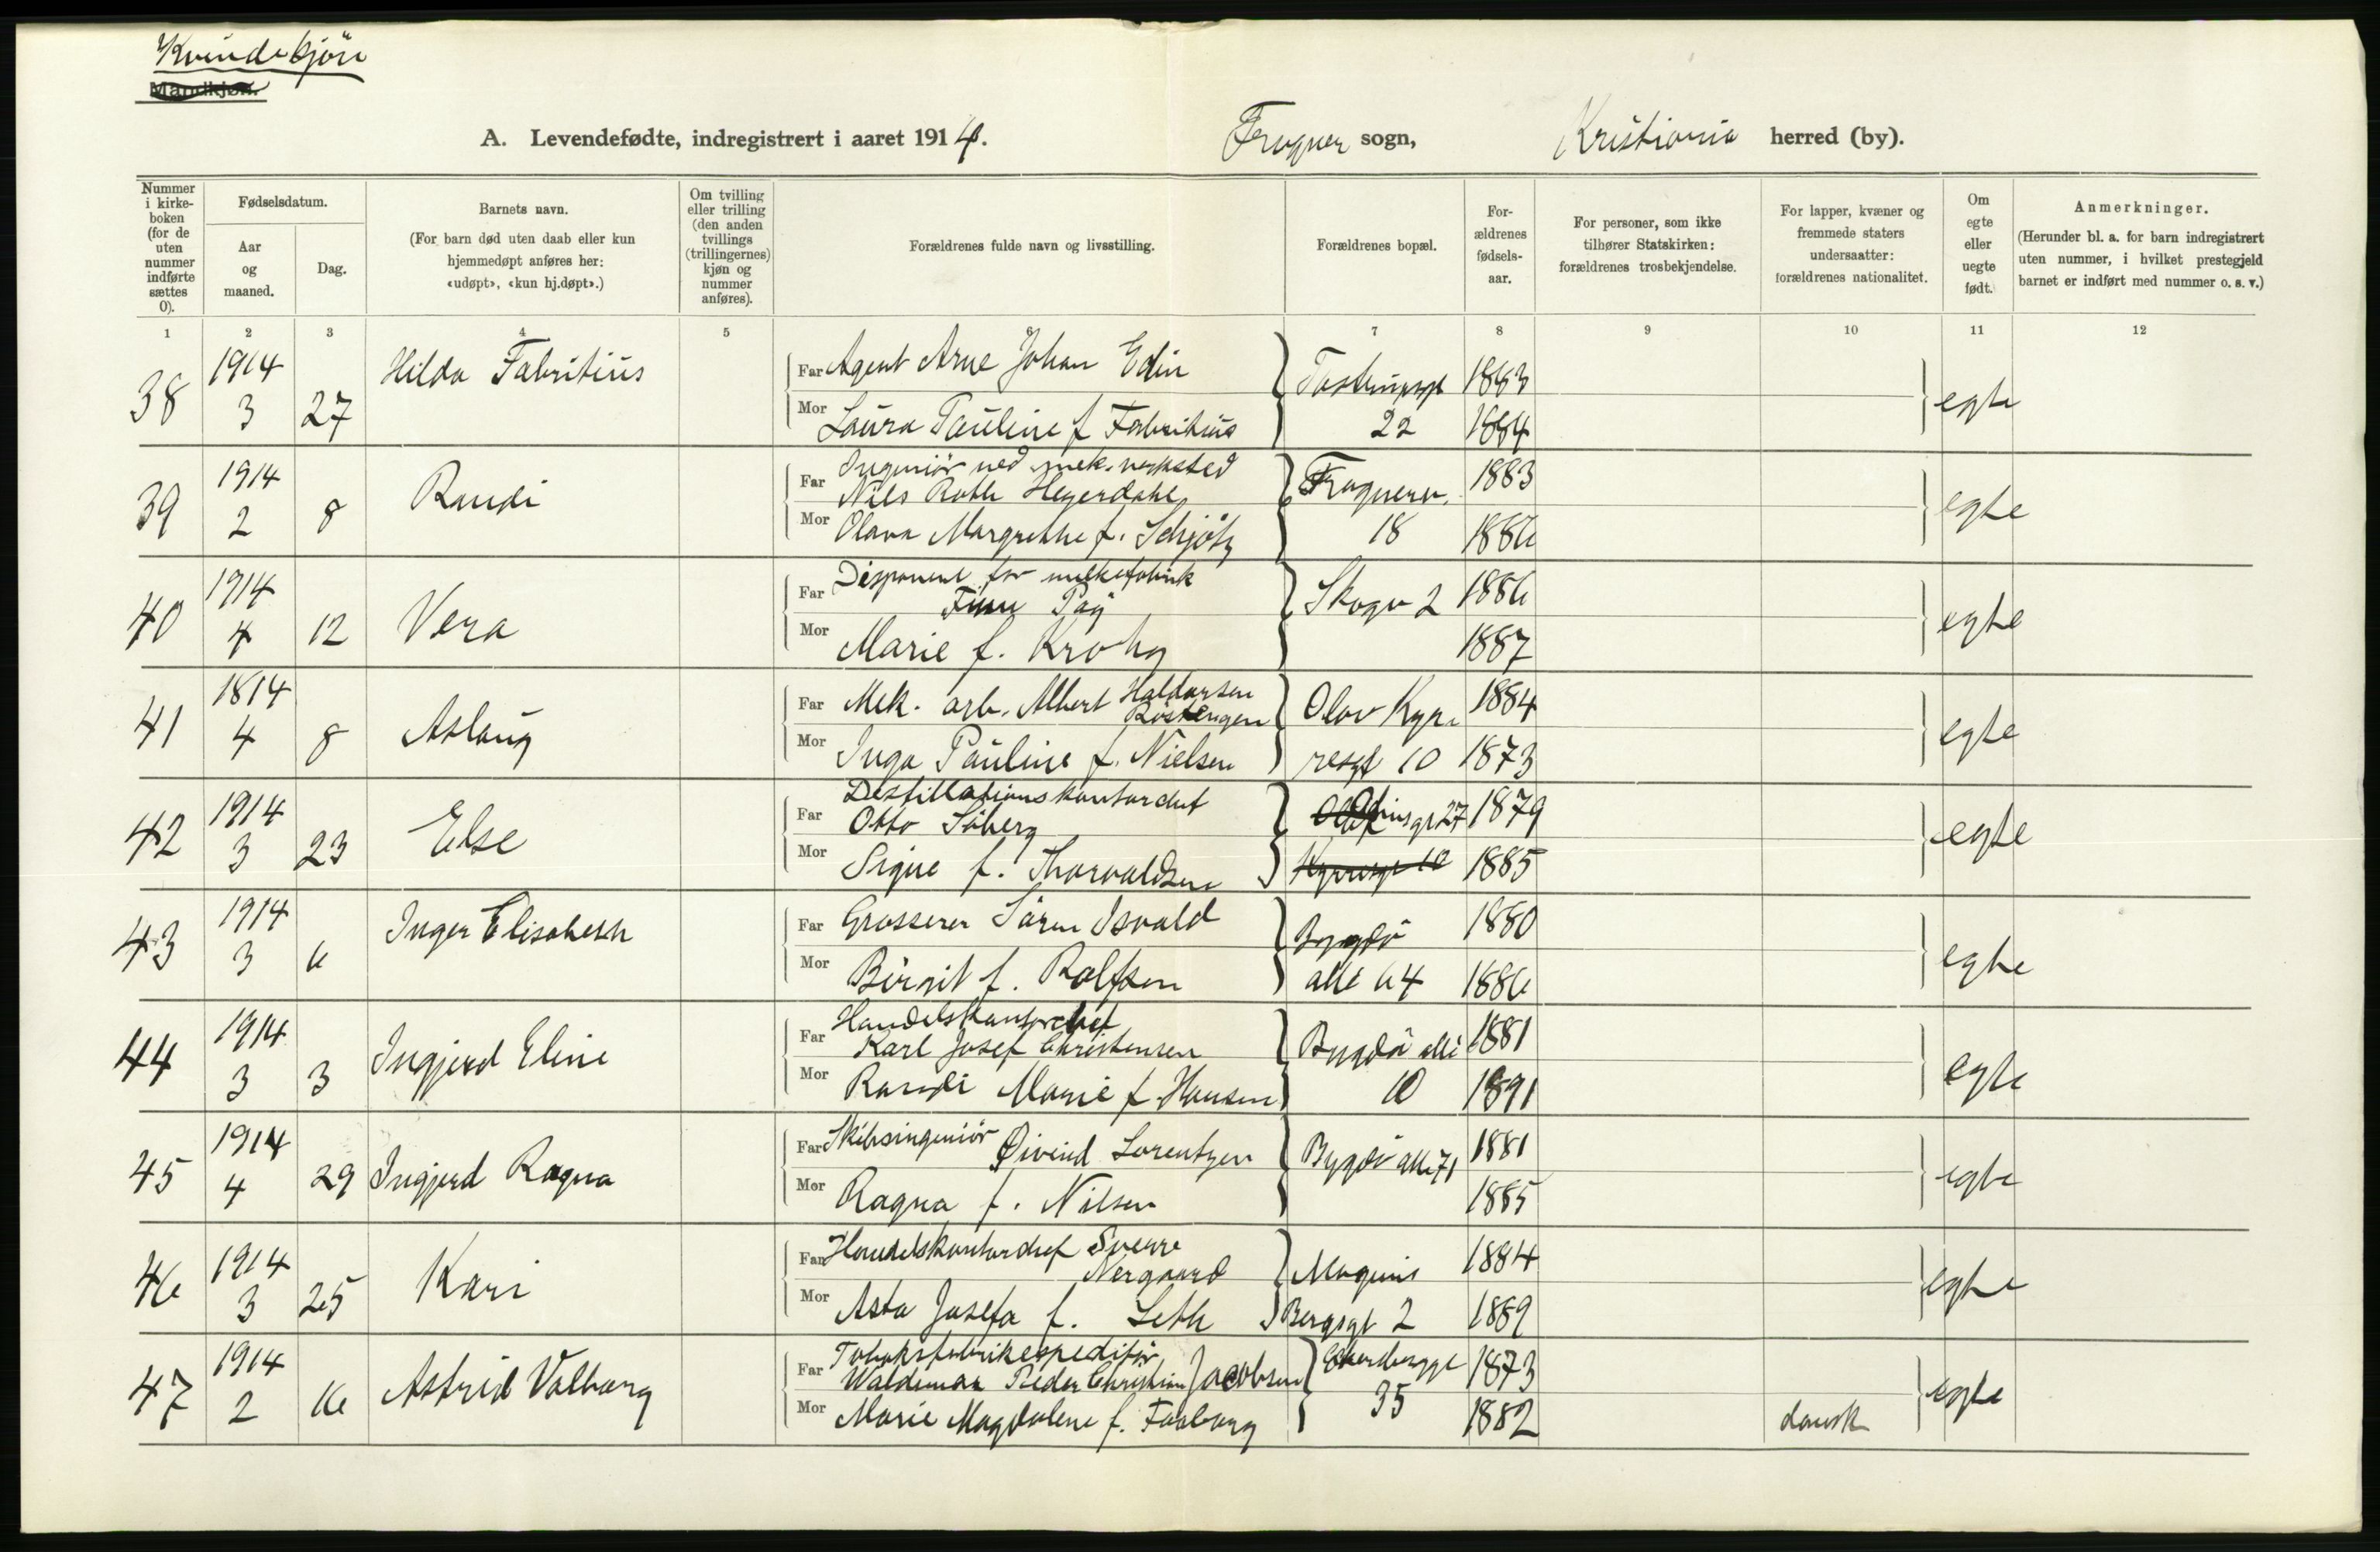 Kvindekjön
Mandkjøn.
A. Levendefødte, indregistrert i aaret 1914. Frogner sogn, Kristiania herred (by).
Nummer i kirke-boken (for de uten nummer indførte sættes 0).
Fødselsdatum.
Aar og maaned.
Dag.
Barnets navn.
(For barn død uten daab eller kun hjemmedøpt anføres her: «udøpt», «kun hj.døpt».)
Om tvilling eller trilling (den anden tvillings (trillingernes) kjøn og nummer anføres).
Forældrenes fulde navn og livsstilling.
Forældrenes bopæl.
For-ældrenes fødsels-aar.
For personer, som ikke tilhører Statskirken: forældrenes trosbekjendelse.
For lapper, kvæner og fremmede staters undersaatter: forældrenes nationalitet.
Om egte eller uegte født.
Anmerkninger.
(Herunder bl. a. for barn indregistrert uten nummer, i hvilket prestegjeld barnet er indført med nummer o. s. v.)
1 2 3 4 5 6 7 8 9 10 11 12
38 1914 3 27 Hilda Fabritius
Far Agent Arne Johan Edin 1883
Mor Laura Pauline f Fabritius 22 1884 egte
39 1914 2 8 Randi
Far Ingeniör ved mek. verksted
Nils Roth Heyerdahl Frognerv. 1883
Mor Olava Margrethe f. Schjötz 18 1886 egte
40 1914 4 12 Vera
Far Disponent for melkefabrik
Finn Pay Skogv 2 1886
Mor Marie f. Krohg 1887 egte
41 1814 4 8 Aslaug
Far Mek. arb. Albert Haldorsen
Röstengen Olav Kyr- 1884
Mor Inga Pauline f. Nielsen resgt 10 1873 egte
42 1914 3 23 Else
Far Destillationskontorchef
Otto Siberg 27 1879
Mor Signe f. Thorvaldsen 1885 egte
43 1914 3 6 Inger Elisabeth
Far Grosserer Sören Isvald Bygdö 1880
Mor Birgit f. Rolfsen alle 64 1886 egte
44 1914 3 3 Ingjerd Eline
Far Handelskontorchef
Karl Josef Christensen Bygdö alle 1881
Mor Randi Marie f. Hansen 10 1891 egte
45 1914 4 29 Ingjerd Ragna
Far Skibsingeniör Øivind Lorentzen Bygdö alle 71 1881
Mor Ragna f. Nilsen 1885 egte
46 1914 3 25 Kari
Far Handelskontorchef Sverre
Nergaard Magnus 1884
Mor Asta Josefa f. Leth Bergsgt 2 1889 egte
47 1914 2 16 Astrid Valborg
Far Tobaksfabrikexpeditör
Waldemar Peder Christian Jacobsen Eckersbergsgt 1873
Mor Marie Magdalene f. Faaborg 35 1882 dansk egte